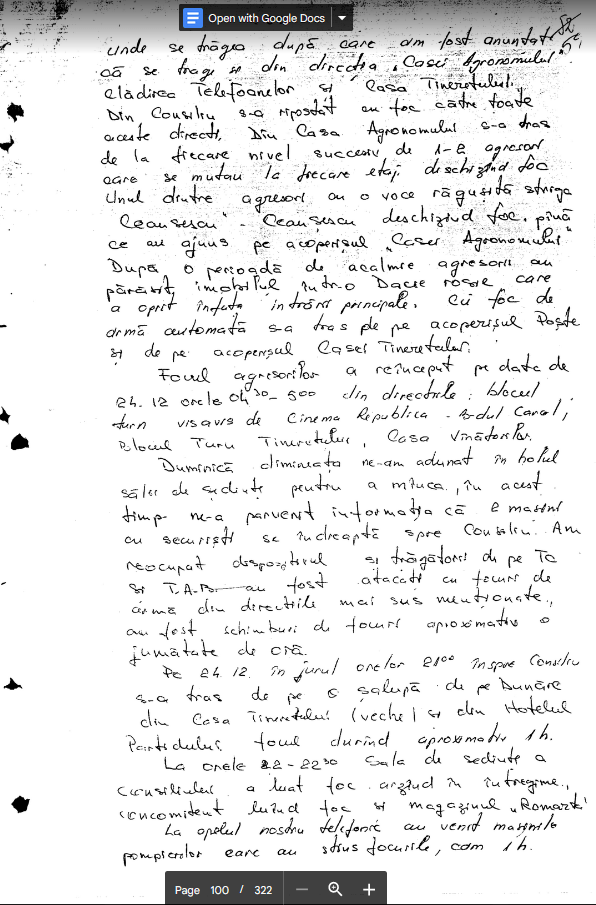 Open with Google Docs
unde se trăgea după care am fost anunțat
că se trage și din direcția „Casei Agronomului"
clădirea Telefoanelor și Casa Tineretului.
Din Consiliu s-a ripostat cu foc către toate
aceste direcții. Din Casa Agronomului s-a tras
de la fiecare nivel succesiv de 1-2 agresori
care se mutau la fiecare etaj deschizînd foc
Unul dintre agresori cu o voce răgușită striga
Ceaușescu" - Ceaușescu deschizînd foc, pînă
ce au ajuns pe acoperișul „Casei Agronomului"
După o perioadă de acalmie agresorii au
părăsit imobilul într-o Dacie roșie care
a oprit înfața intrării principale. Cu foc de
armă automată s-a tras de pe acoperișul Poște
și de pe acoperișul Casei Tineretului.
Focul agresorilor a reînceput pe data de
24.12 orele 04³⁰-500 din direcțiile: blocul
turn visavis de Cinema Republica - Bdul Carol,
Blocul Turn Tineretului, Casa Vînătorilor.
Duminică dimineața ne-am adunat în holul
sălii de ședințe pentru a mînca, în acest
timp ne-a parvenit informația că 2 mașini
cu securiști se îndreaptă spre Consiliu. Am
reocupat dispozitivul și trăgătorii de pe Tc
și T.A.B. au fost atacați cu focuri de
armă din direcțiile mai sus menționate,
au fost schimburi de focuri aproximativ o
jumătate de oră.
Pe 24.12. în jurul orelor 21⁰⁰ înspre Consiliu
s-a tras de pe o șalupă de pe Dunăre
din Casa Tineretului (veche) și din Hotelul
Partidului, focul durînd aproximativ 1h.
La orele 22-22³⁰ Sala de ședințe a
Consiliului a luat foc arzînd în întregime,
concomitent luînd foc și magazinul „Romarta"
La apelul nostru telefonic au venit mașinile
pompierilor care au stins focurile, cam 1h.
Page 100 / 322